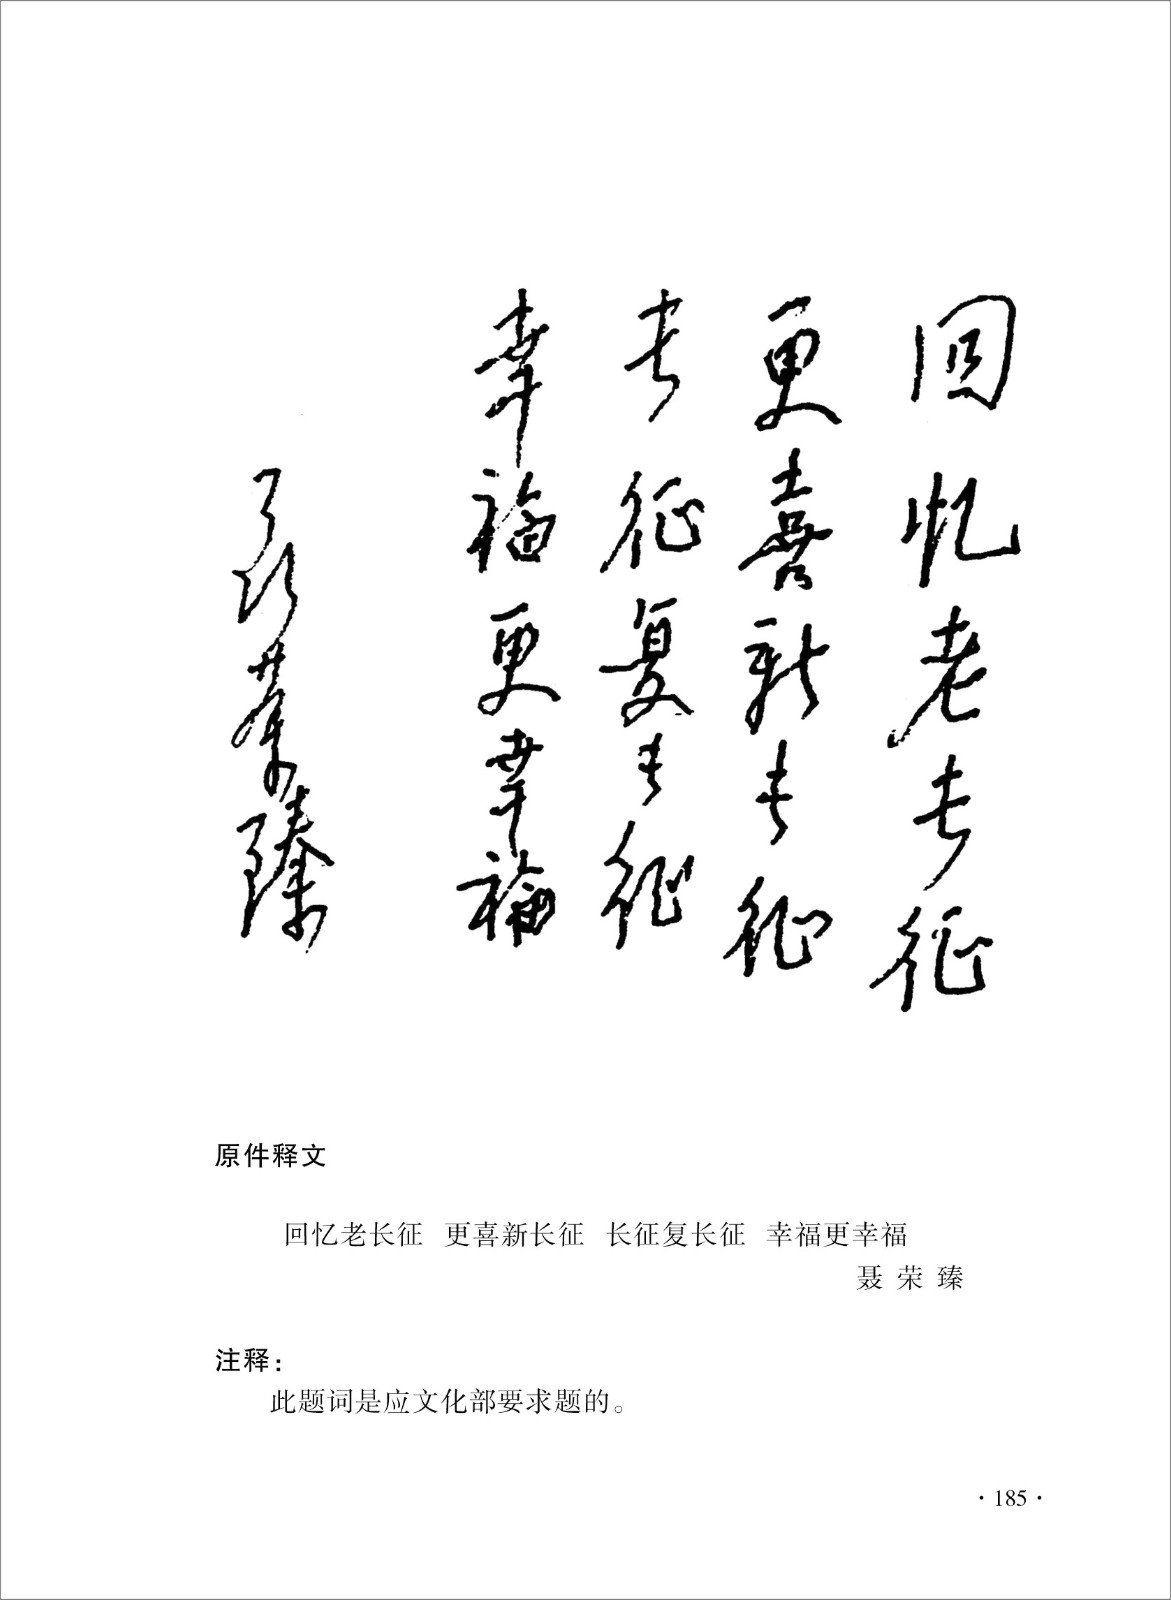 回忆老长征
更喜新长征
长征复长征
幸福更幸福
聂荣臻
原件释文
回忆老长征 更喜新长征 长征复长征 幸福更幸福
聂荣臻
注释：
此题词是应文化部要求题的。
·185·